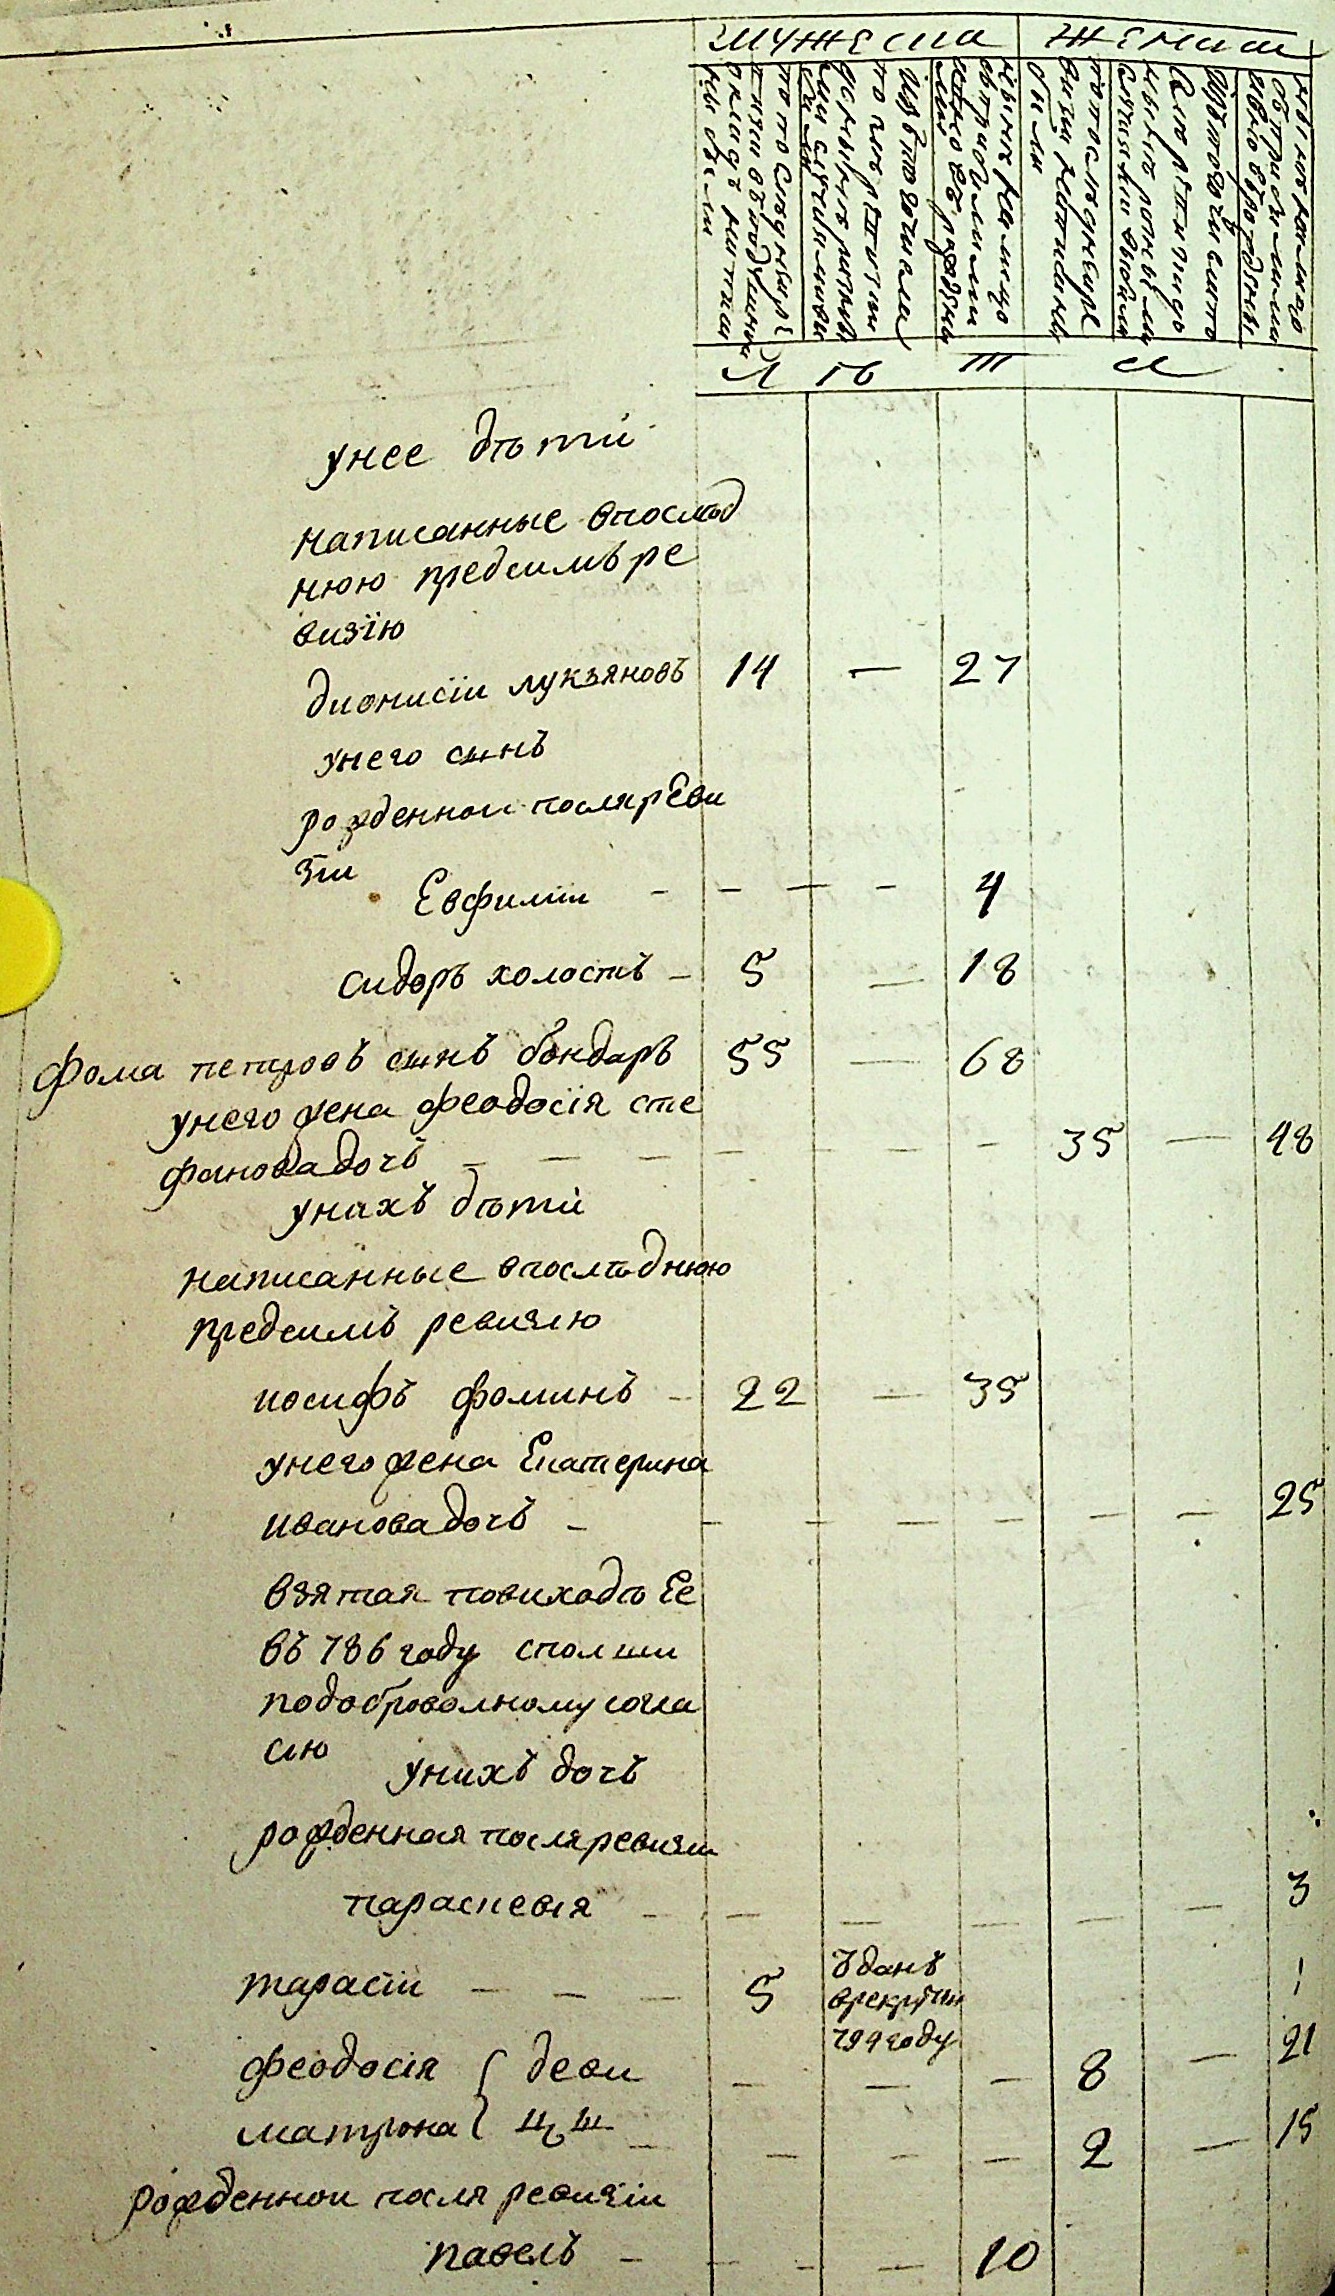 мужеска женска
Л Ѣ Т А
унее дѣти
написанные впослѣд
нюю предсимъ ре
визїю
дионисїи лукьяновъ 14 — 27
унего сынъ
рожденнои посляреви
зїи
Евфимїи — — — — 4
сидоръ холостъ — 5 — 18
Фома петровъ сынъ бондаръ 55 — 68
унего жена феодосїя сте
фановадочъ — — — — — — — 35 — 48
унихъ дѣти
написанные впослѣднюю
предсимъ ревизию
иосифъ фоминъ — 22 — 35
унего жена Екатерина
ивановадочъ — — — — — — — 25
взятая повиходѣ Ее
въ 786 году сполши
подоброволному согла
сию
унихъ дочъ
рожденная посляревизи
параскевия — — — — — — 3
тарасїи — — — 5 ѣданъ
врекруты
794 году
феодосїя { деви — — — 8 — 21
матрона { цы — — — — 2 — 15
рожденнои посля ревизїи
павелъ — — — — 10